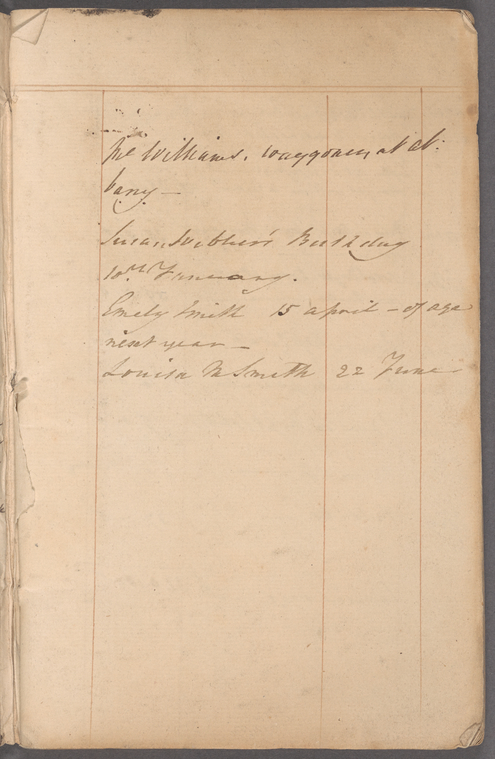 Mr Williams, waggoner, at Al-
bany—
Susan Webber's Birthday
10th January.
Emely Smith 15 april – of age
next year—
Louisa M Smith 22 June